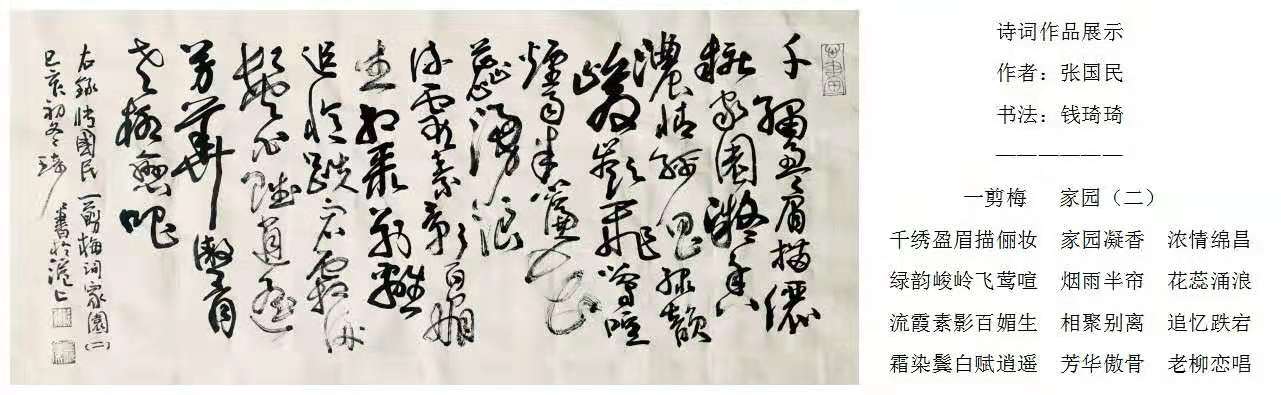 千繡盈眉描儷
妝家園凝香
濃情綿昌綠韻
峻嶺飛鶯喧
煙雨半簾花
蕊湧浪
流霞素影百媚
生相聚別離
追憶跌宕霜染
鬢白賦逍遙
芳華傲骨
老柳戀唱
右錄張國民一剪梅詞家園(二)
己亥初冬琦琦書於滬上
诗词作品展示
作者：张国民
书法：钱琦琦
——————
一剪梅 家园（二）
千绣盈眉描俪妆 家园凝香 浓情绵昌
绿韵峻岭飞莺喧 烟雨半帘 花蕊涌浪
流霞素影百媚生 相聚别离 追忆跌宕
霜染鬓白赋逍遥 芳华傲骨 老柳恋唱